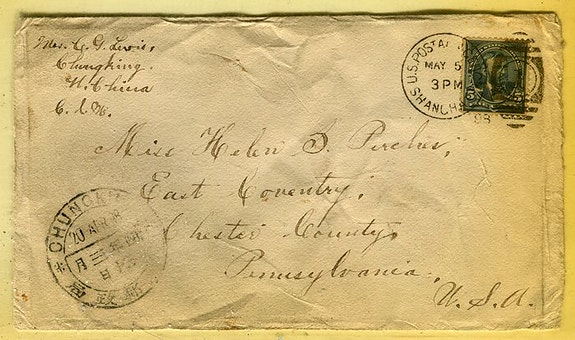 Mrs. C. G. Lewis,
Chungking,
W. China
C. I. M.
U.S. POSTAL
MAY 5
3 PM
SHANGH
98
5
Miss Helen S.
East Coventry,
Chester County,
Pennsylvania.
U. S. A.
CHUNGK
20 APR 98
三
月
日
政
局